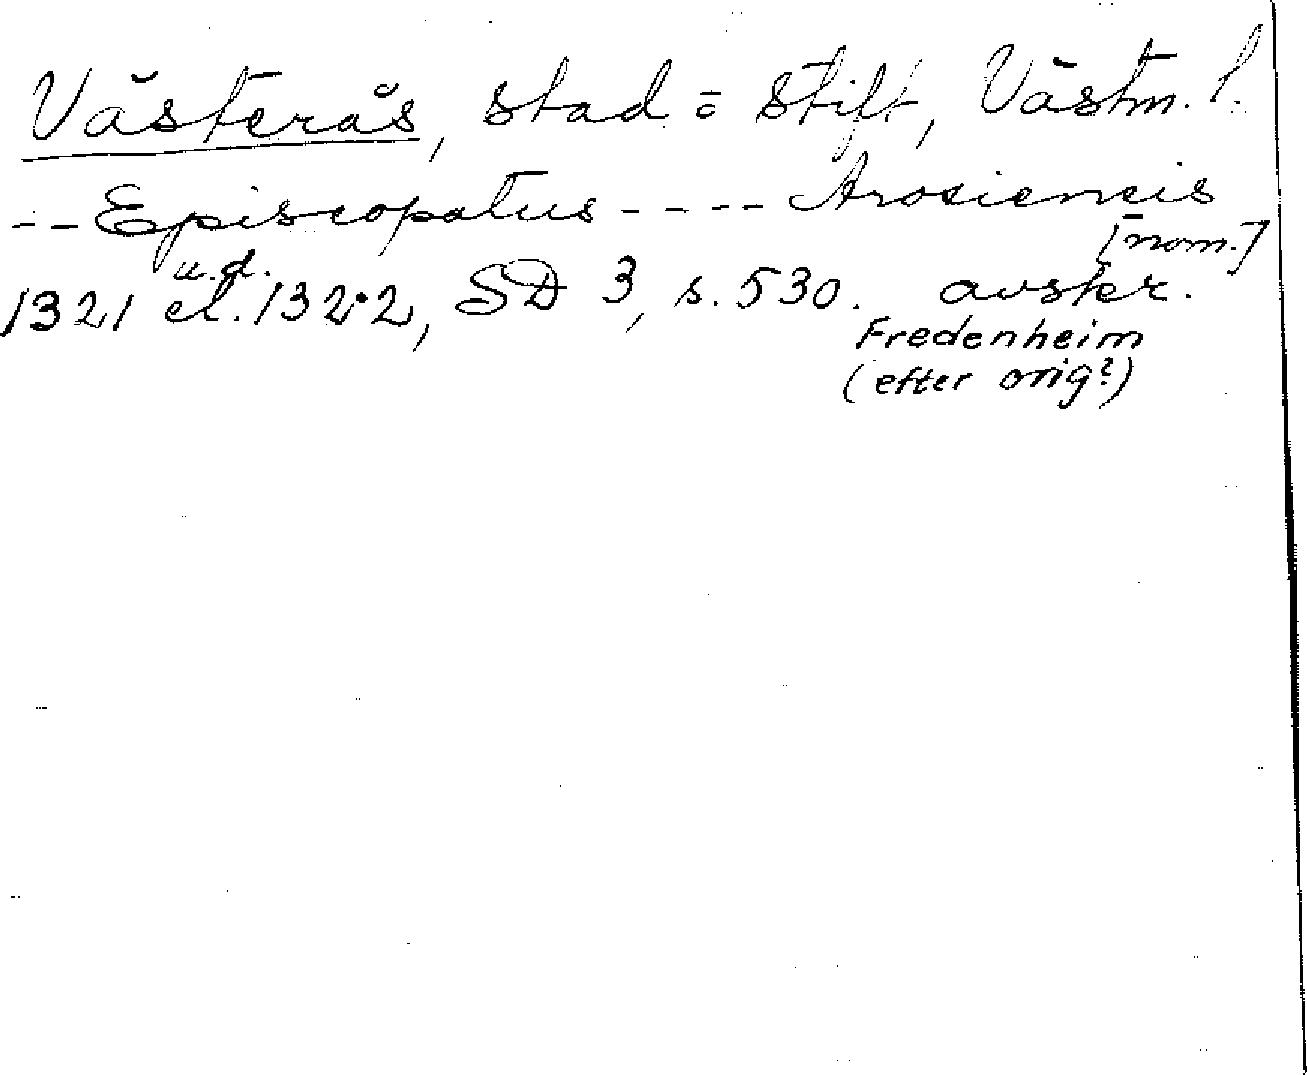 Västerås, stad o stift, Västm. l.
-- Episcopatus ---- Arosiensis
[nom.]
u.d.
1321 el. 1322, SD 3, s. 530. avskr.
Fredenheim
(efter orig?)